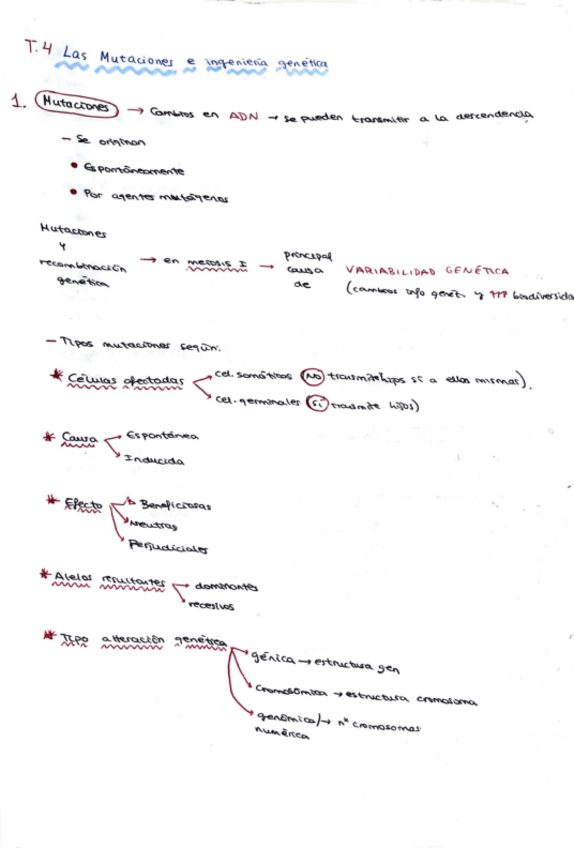 T.4 Las Mutaciones e ingeniería genética
1. Mutaciones → Cambios en ADN → se pueden transmitir a la descendencia
- Se originan
• Espontáneamente
• Por agentes mutágenos
Mutaciones
y
recombinación
genética
→ en meiosis I →
principal
causa
de
VARIABILIDAD GENÉTICA
(cambios info genét. y ↑↑↑ biodiversida
- Tipos mutaciones según:
* Células afectadas
cel. somáticas (NO transmite hijos sí a ellas mismas).
cel. germinales (SÍ transmite hijos)
* Causa
Espontánea
Inducida
* Efecto
Beneficiosas
Neutras
Perjudiciales
* Alelos resultantes
dominantes
recesivos
* Tipo alteración genética
génica → estructura gen
Cromosómica → estructura cromosoma
genómica/ → nº cromosomas
numérica